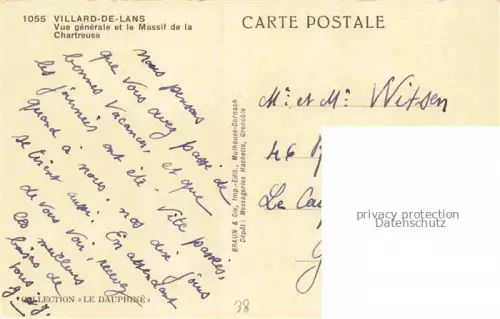 1055 VILLARD-DE-LANS
Vue générale et le Massif de la
Chartreuse
CARTE POSTALE
nous pensons
que vous avez passé de
bonnes vacances, et que
les journées ont été vite passées,
quand à nous, nos dix jours
se tirent aussi. En attendant
de vous voir, recevez
les meilleurs
baisers de
tous
BRAUN & Cie, Imp.-Edit., Mulhouse-Dornach
Dépôt: Messageries Hachette, Grenoble
Mr. et Mr. Witsen
46
Le
privacy protection
Datenschutz
COLLECTION "LE DAUPHINÉ"
38